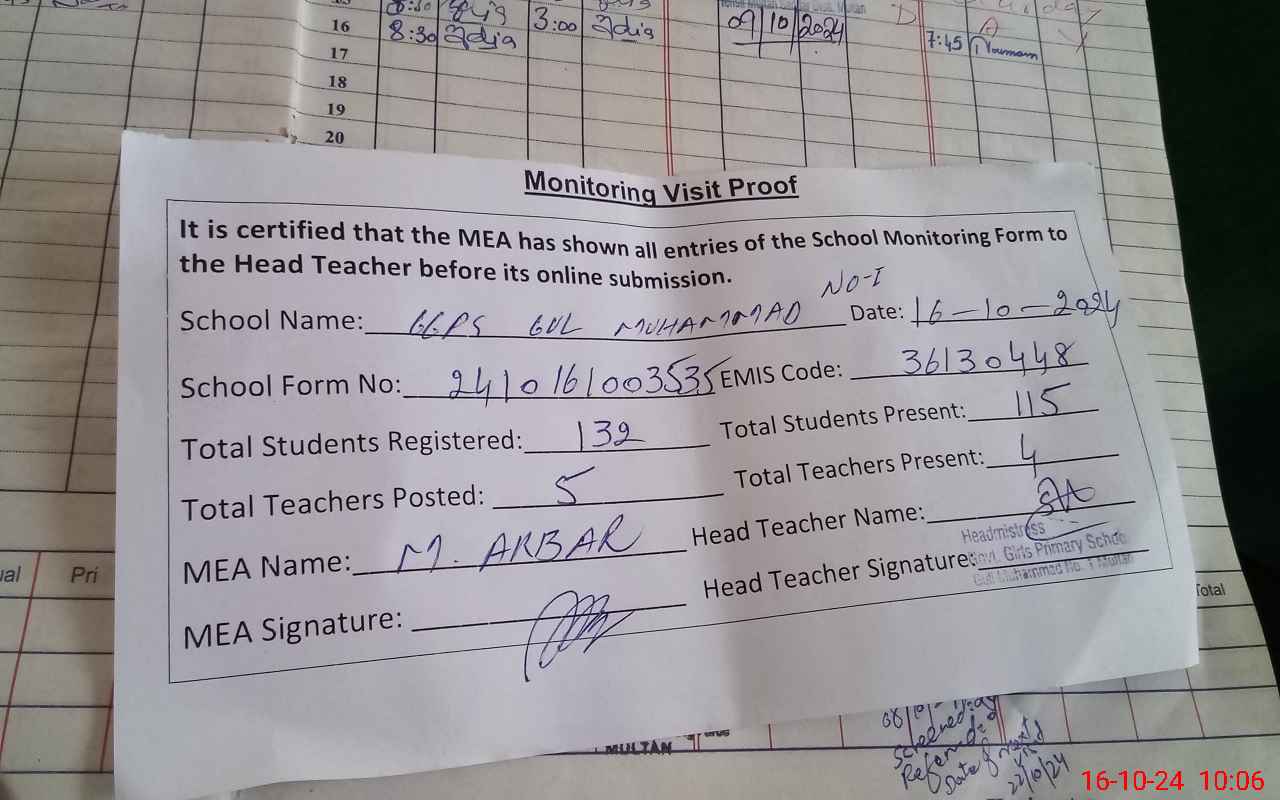 16 8:30 3:00 09/10/2024 D A
17 7:45
18
19
20
Monitoring Visit Proof
It is certified that the MEA has shown all entries of the School Monitoring Form to
the Head Teacher before its online submission.
School Name: GGPS GUL MUHAMMAD NO-I Date: 16-10-2024
School Form No: 2410161003535 EMIS Code: 36130448
Total Students Registered: 132 Total Students Present: 115
Total Teachers Posted: 5 Total Teachers Present: 4
MEA Name: M. AKBAR Head Teacher Name:
MEA Signature: Head Teacher Signature:
Headmistress
Govt. Girls Primary School
Gull Muhammad No. 1 Multan
ual Pri
Total
MULTAN
Screened
Date of next
22/10/24
16-10-24 10:06